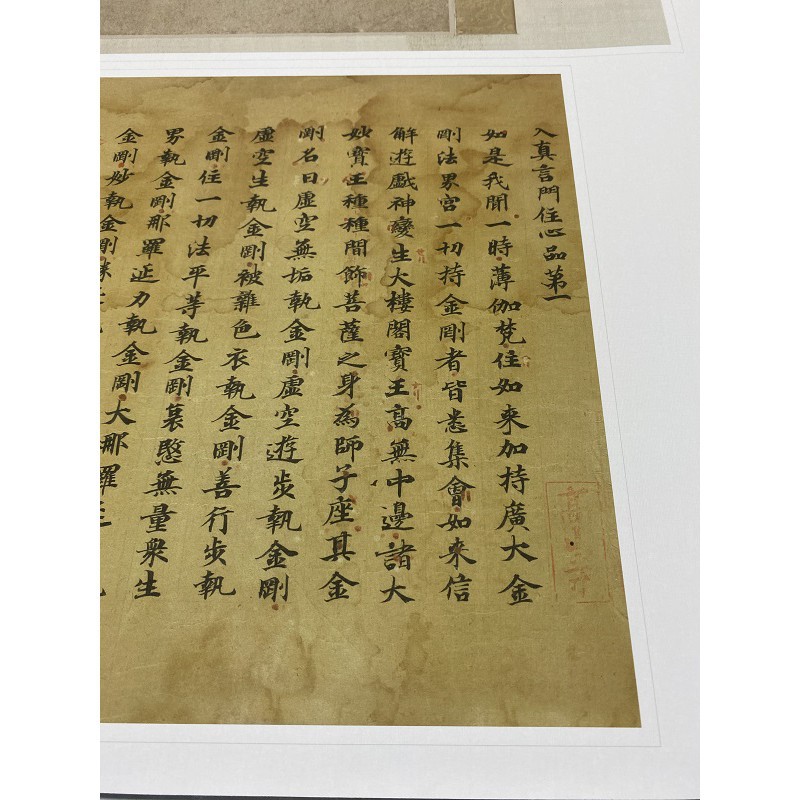 入真言門住心品第一
如是我聞一時薄伽梵住如来加持廣大金
剛法界宮一切持金剛者皆悉集會如来信
解遊戯神變生大樓閣寳王高無中邊諸大
妙寳王種種間飾菩薩之身為師子座其金
剛名曰虚空無垢執金剛虚空遊步執金剛
虚空生執金剛被雜色衣執金剛善行步執
金剛住一切法平等執金剛哀愍無量衆生
界執金剛那羅延力執金剛大那羅延
金剛妙執金剛